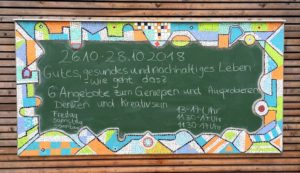 26.10-28.10.2018
Gutes, gesundes und nachhaltiges Leben
- wie geht das?
6 Angebote zum Genießen und Ausprobieren
Denken und Kreativsein
Freitag 13-17 Uhr
Samstag 11.30-17 Uhr
Sonntag 11.30-17 Uhr